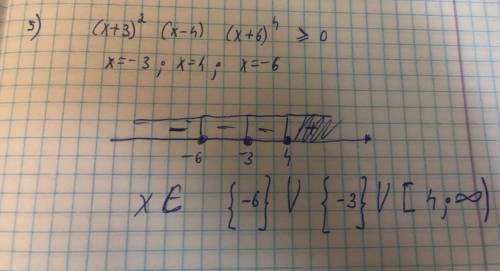 5) (x+3)² (x-4) (x+6)⁴ ≥ 0
x=-3; x=4; x=-6
- - - +
-6 -3 4
x ∈ {-6} ∪ {-3} ∪ [4;∞)